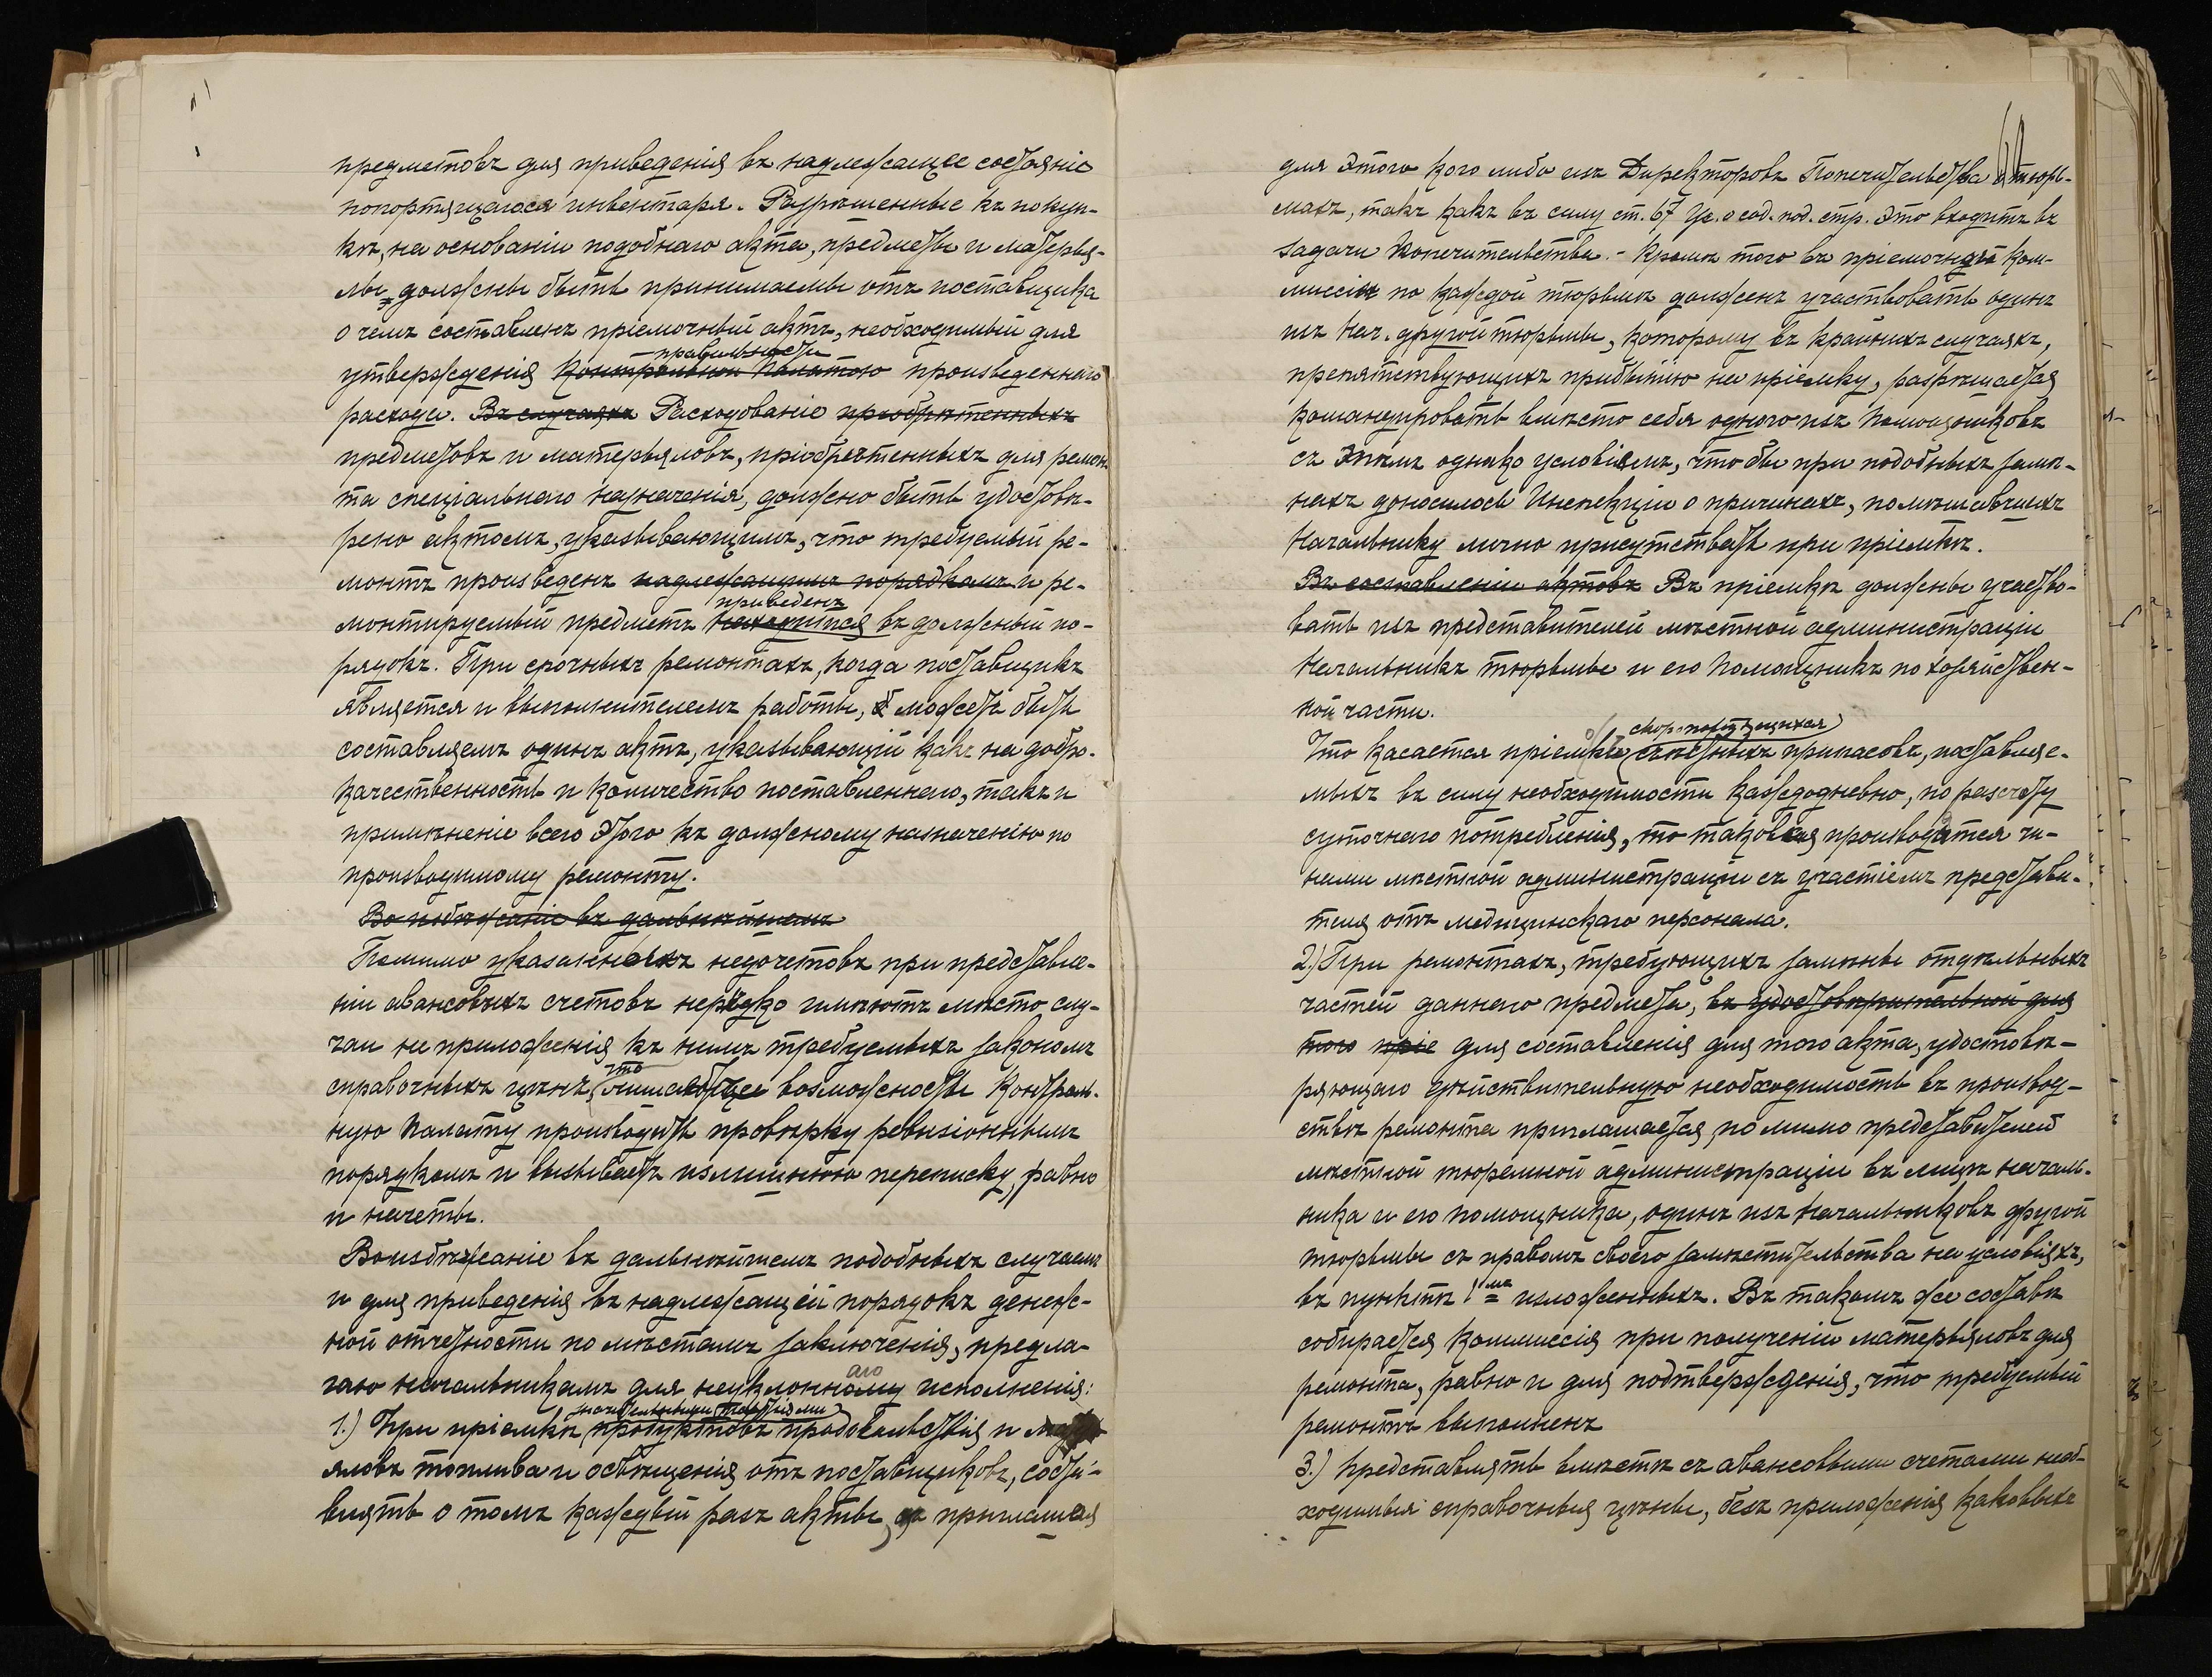 предметовъ для приведенія въ надлежащее состояніе
попортящагося инвентаря. Разрѣшенные къ покуп-
кѣ, на основаніи подобнаго акта, предметы и матерья-
лы, должны быть принимаемы отъ поставщика
о чемъ составленъ пріемочный актъ, необходимый для
правильности
утвержденія Контрольною Палатою произведеннаго
расхода. Въ случаяхъ Расходованіе пріобрѣтенныхъ
предметовъ и матерьяловъ, пріобрѣтенныхъ для ремон-
та спеціальнаго назначенія, должно быть удостовѣ-
рено актомъ, указывающимъ, что требуемый ре-
монтъ произведенъ надлежащимъ порядкомъ и ре-
приведенъ
монтируемый предметъ находится въ должный по-
рядокъ. При срочныхъ ремонтахъ, когда поставщикъ
является и выполнителемъ работы, можетъ быть
составляемъ одинъ актъ, указывающій какъ на добро-
качественность и количество поставленнаго, такъ и
примѣненіе всего этого къ должному назначенію по
производимому ремонту.
Во избѣжаніе въ дальнѣйшемъ
Помимо указанныхъ недочетовъ при представле-
ніи авансовыхъ счетовъ нерѣдко имѣютъ мѣсто слу-
чаи не приложенія къ нимъ требуемыхъ закономъ
что
справочныхъ цѣнъ, лишающее возможности Контроль-
ную Палату производить провѣрку ревизіоннымъ
порядкомъ и вызываетъ излишнюю переписку, равно
и начеты.
Воизбѣжаніе въ дальнѣйшемъ подобныхъ случаевъ
и для приведенія въ надлежащій порядокъ денеж-
ной отчетности по мѣстамъ заключенія, предла-
аго
гаю начальникамъ для неуклонному исполненія:
1.) При пріемкѣ продуктовъ продовольствія и
яловъ топлива и освѣщенія отъ поставщиковъ, соста-
влять о томъ каждый разъ акты, приглашая
для этого кого либо изъ Директоровъ Попечительства о тюрь-
махъ, такъ какъ въ силу ст. 67 Ус. о сод. под. стр. это входитъ въ
задачи Попечительства. - Кромѣ того въ пріемочной Ком-
миссіи по каждой тюрьмѣ долженъ участвовать одинъ
изъ Нач. другой тюрьмы, которому въ крайнихъ случаяхъ,
препятствующихъ прибытію на пріемку, разрѣшается
командировать вмѣсто себя одного изъ Помощниковъ
съ этимъ однако условіемъ, что бы при подобныхъ замѣ-
нахъ доносилось Инспекціи о причинахъ, помѣшавшихъ
Начальнику лично присутствовать при пріемкѣ.
Въ составленіи актовъ Въ пріемкѣ должны участво-
вать изъ представителей мѣстной администраціи
Начальникъ тюрьмы и его Помощникъ по хозяйствен-
ной части.
скоропортящихся
Что касается пріемки съѣстныхъ припасовъ, поставляе-
мыхъ въ силу необходимости каждодневно, по разсчету
суточнаго потребленія, то таковая производится чи-
нами мѣстной администраціи съ участіемъ представи-
теля отъ медицинскаго персонала.
2.) При ремонтахъ, требующихъ замѣны отдѣльныхъ
частей даннаго предмета, въ удостовѣрительной для
того пріе для составленія для того акта, удостовѣ-
ряющаго дѣйствительную необходимость въ производ-
ствѣ ремонта приглашается, помимо представителей
мѣстной тюремной администраціи въ лицѣ началь-
ника и его помощника, одинъ изъ Начальниковъ другой
тюрьмы съ правомъ своего замѣстительства на условіяхъ,
въ пунктѣ 1мъ изложенныхъ. Въ такомъ же составѣ
собирается коммиссія при полученіи матерьяловъ для
ремонта, равно и для подтвержденія, что требуемый
ремонтъ выполненъ
3.) Представлять вмѣстѣ съ авансовыми счетами необ-
ходимыя справочныя цѣны, безъ приложенія каковыхъ